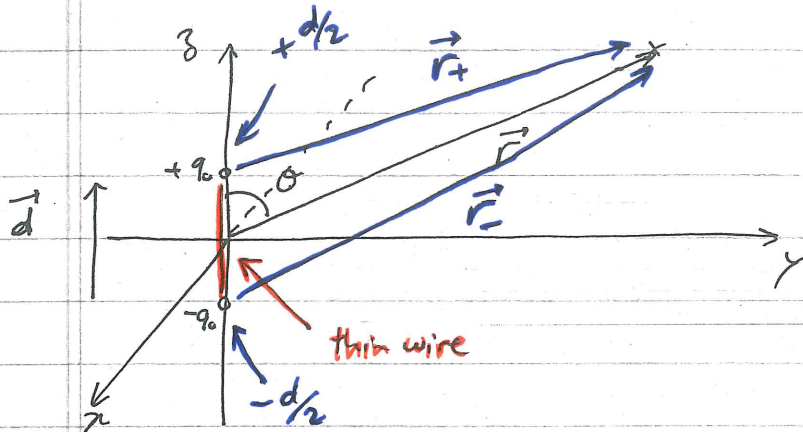 z
+ d/2
r₊
+q₀
θ
r
d
r₋
y
-q₀
thin wire
- d/2
x